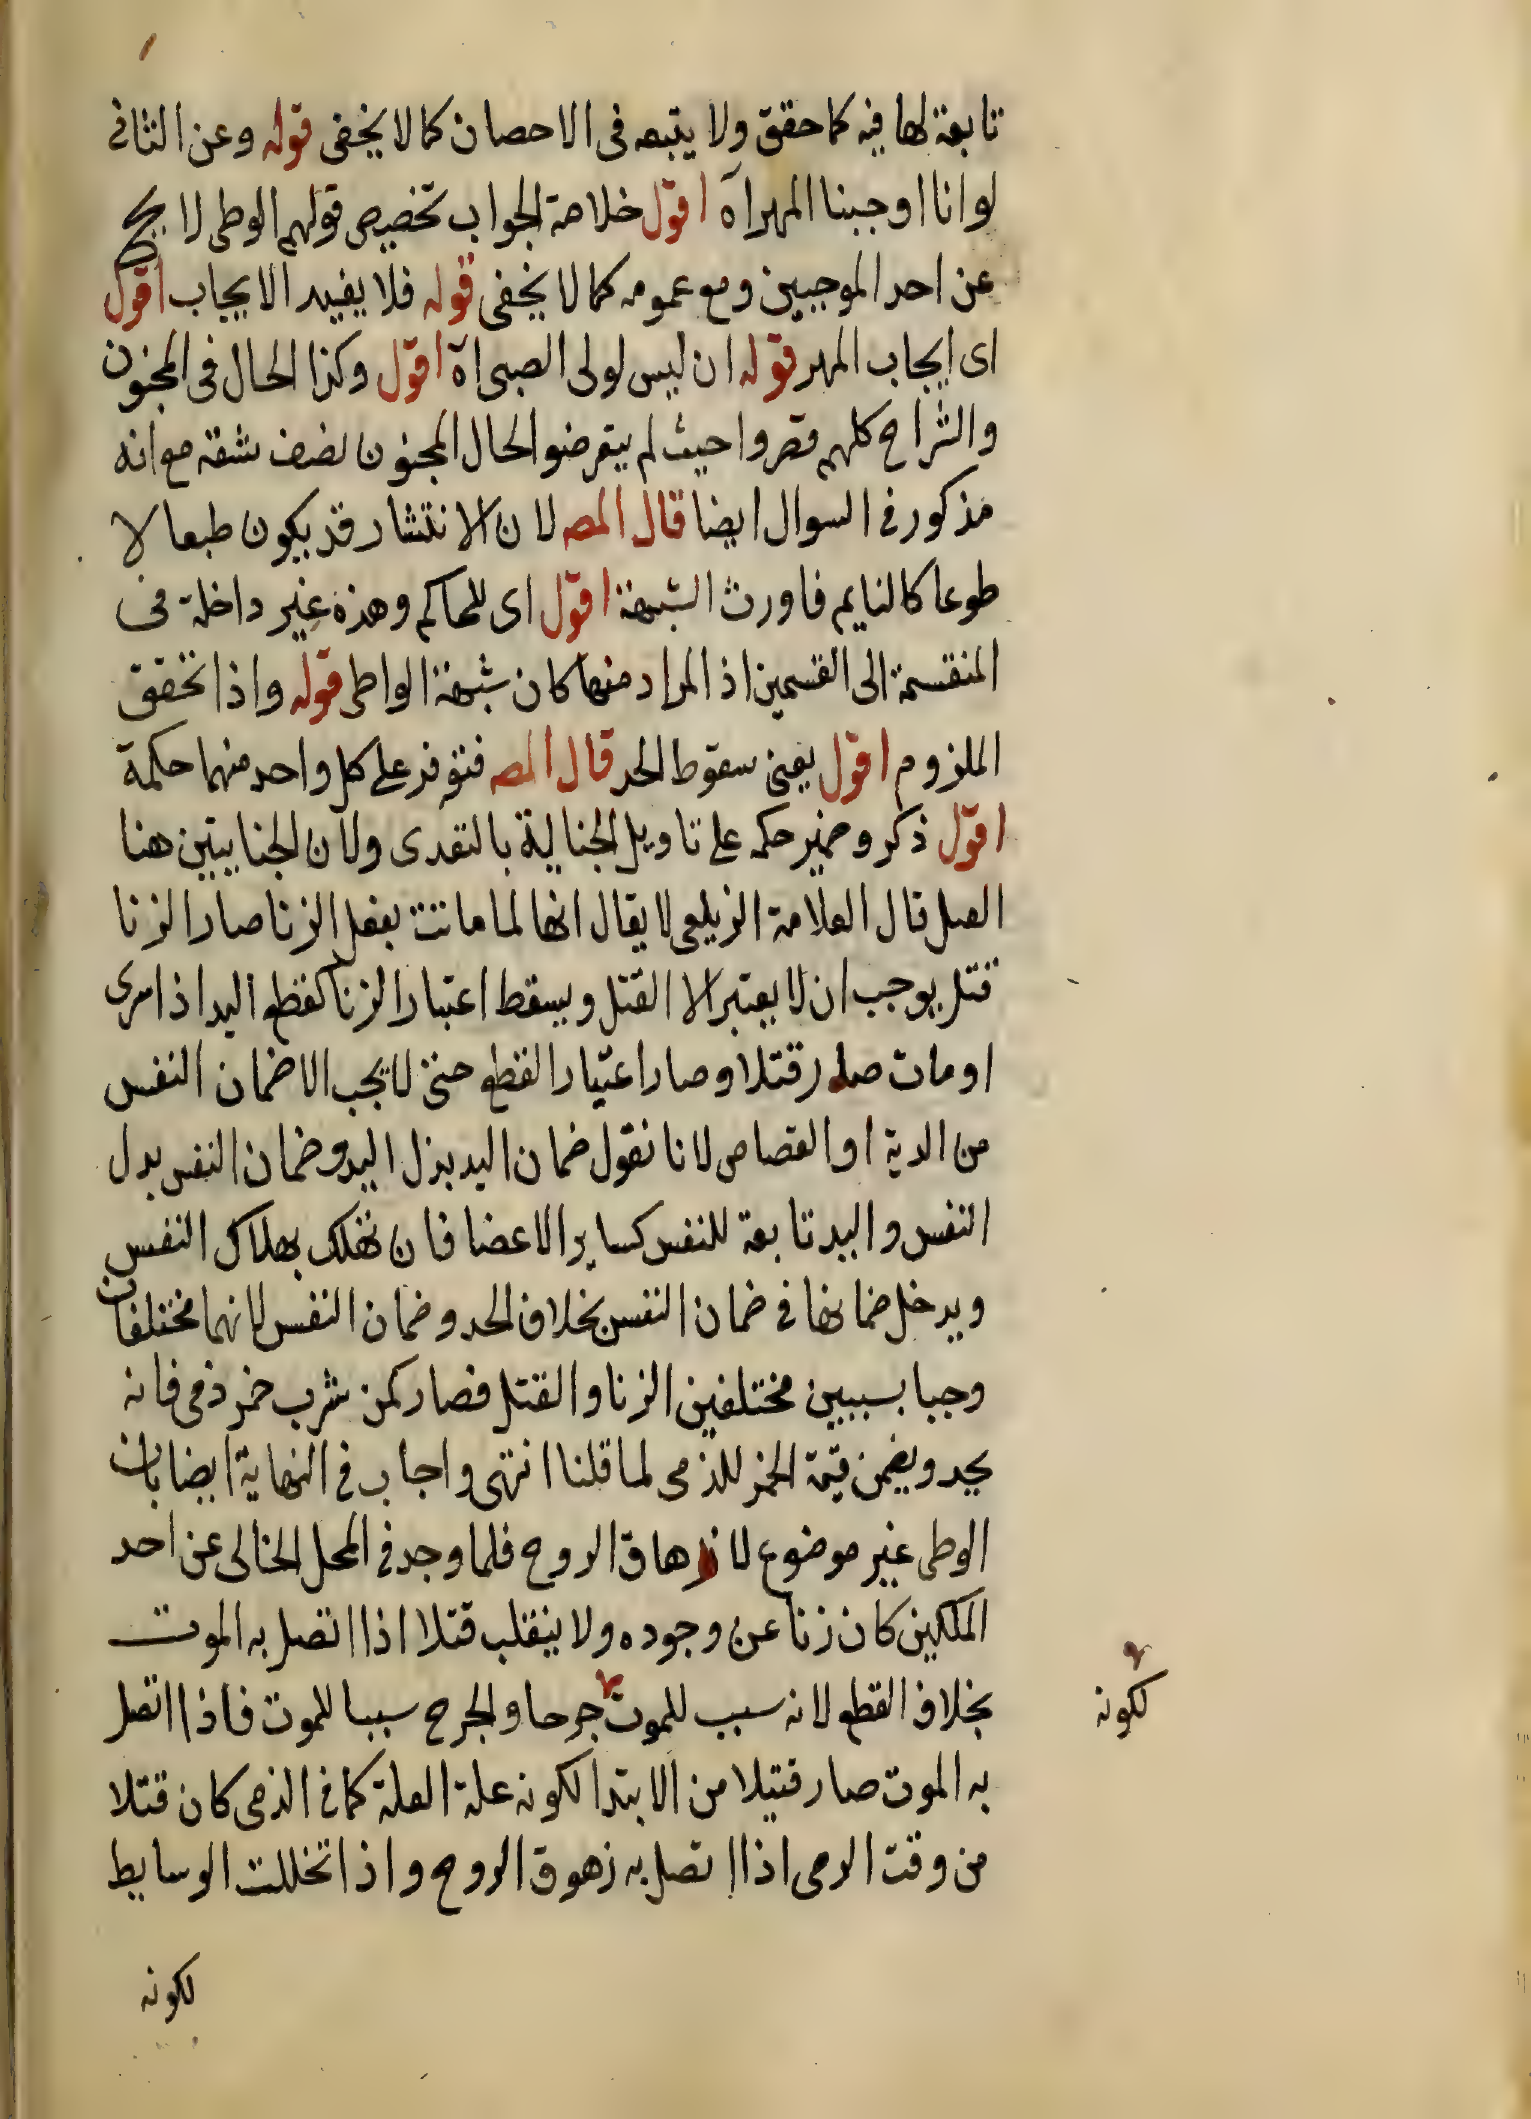 تابعة لها فيه كما حقق ولا يتبعه في الاحصان كما لا يخفى قوله وعن الثاني
لو انا اوجبنا المهر اه اقول خلاصة الجواب تخصيص قولهم الوطى لا يخ
عن احد الموجبين ومع عمومه كما لا يخفى قوله فلا يفيد الايجاب اقول
اى ايجاب المهر قوله ان ليس لولى الصبى اه اقول وكذا الحال فى المجنون
والشراح كلهم قصروا حيث لم يتعرضوا لحال المجنون نصف شقة مع انه
مذكور فى السوال ايضا قال المصه لان الانتشار قد يكون طبعا لا
طوعا كالنايم فاورث الشبهة اقول اى للحاكم وهذه غير داخلة فى
المنقسمة الى القسمين اذ المراد منها كان شبهة الواطى قوله واذا تحقق
الملزوم اقول يعنى سقوط الحد قال المصه فتوفر على كل واحد منهما حكمة
اقول ذكر وضمير حكمه على تاويل الجناية بالتعدى ولان الجنايتين هنا
الفعل قال العلامة الزيلعى لا يقال انها لما ماتت بفعل الزنا صار الزنا
قتل يوجب ان لا يعتبر الا القتل ويسقط اعتبار الزنا كقطع اليد اذا سرى
او مات صار قتلا وصار اعتبار القطع حتى لا يجب الا ضمان النفس
من الدية او القصاص لانا نقول ضمان اليد بدل اليد وضمان النفس بدل
النفس واليد تابعة للنفس كساير الاعضا فان تهلك بهلاك النفس
ويدخل ضمانها فى ضمان النفس بخلاف الحد وضمان النفس لانهما مختلفان
وجبا بسببين مختلفين الزنا والقتل فصار كمن شرب خمر ذمى فانه
يحد ويضمن قيمة الخمر للذمى لما قلنا انتهى واجاب فى النهاية ايضا بان
الوطى غير موضوع لازهاق الروح فلما وجد فى المحل الخالى عن احد
الملكين كان زنا عن وجوده ولا ينقلب قتلا اذا اتصل به الموت
بخلاف القطع لانه سبب للموت جرحا والجرح سببا للموت فاذا اتصل
لكونه
به الموت صار قتيلا من الابتدا لكونه علة العلة كما فى الذمى كان قتلا
من وقت الرمى اذا اتصل به زهوق الروح واذا تخللت الوسايط
لكونه